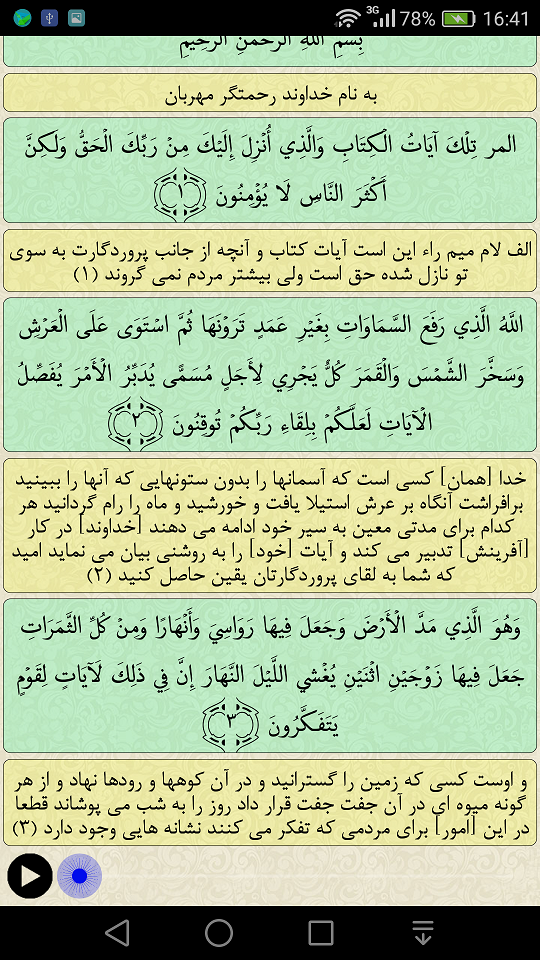 3G 78% 16:41
بِسْمِ اللَّهِ الرَّحْمَنِ الرَّحِيمِ
به نام خداوند رحمتگر مهربان
المر تِلْكَ آيَاتُ الْكِتَابِ وَالَّذِي أُنْزِلَ إِلَيْكَ مِنْ رَبِّكَ الْحَقُّ وَلَكِنَّ
أَكْثَرَ النَّاسِ لَا يُؤْمِنُونَ ﴿۱﴾
الف لام میم راء این است آیات کتاب و آنچه از جانب پروردگارت به سوی
تو نازل شده حق است ولی بیشتر مردم نمی گروند (۱)
اللَّهُ الَّذِي رَفَعَ السَّمَاوَاتِ بِغَيْرِ عَمَدٍ تَرَوْنَهَا ثُمَّ اسْتَوَى عَلَى الْعَرْشِ
وَسَخَّرَ الشَّمْسَ وَالْقَمَرَ كُلٌّ يَجْرِي لِأَجَلٍ مُسَمًّى يُدَبِّرُ الْأَمْرَ يُفَصِّلُ
الْآيَاتِ لَعَلَّكُمْ بِلِقَاءِ رَبِّكُمْ تُوقِنُونَ ﴿۲﴾
خدا [همان] کسی است که آسمانها را بدون ستونهایی که آنها را ببینید
برافراشت آنگاه بر عرش استیلا یافت و خورشید و ماه را رام گردانید هر
کدام برای مدتی معین به سیر خود ادامه می دهند [خداوند] در کار
[آفرینش] تدبیر می کند و آیات [خود] را به روشنی بیان می نماید امید
که شما به لقای پروردگارتان یقین حاصل کنید (۲)
وَهُوَ الَّذِي مَدَّ الْأَرْضَ وَجَعَلَ فِيهَا رَوَاسِيَ وَأَنْهَارًا وَمِنْ كُلِّ الثَّمَرَاتِ
جَعَلَ فِيهَا زَوْجَيْنِ اثْنَيْنِ يُغْشِي اللَّيْلَ النَّهَارَ إِنَّ فِي ذَلِكَ لَآيَاتٍ لِقَوْمٍ
يَتَفَكَّرُونَ ﴿۳﴾
و اوست کسی که زمین را گسترانید و در آن کوهها و رودها نهاد و از هر
گونه میوه ای در آن جفت جفت قرار داد روز را به شب می پوشاند قطعا
در این [امور] برای مردمی که تفکر می کنند نشانه هایی وجود دارد (۳)